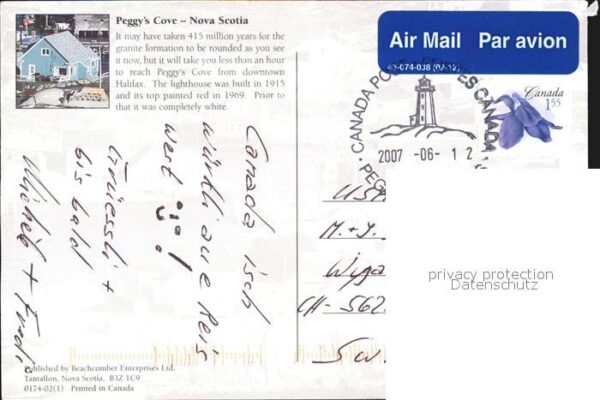 Peggy's Cove – Nova Scotia
It may have taken 415 million years for the
granite formation to be rounded as you see
it now, but it will take you less than an hour
to reach Peggy's Cove from downtown
Halifax. The lighthouse was built in 1915
and its top painted red in 1969. Prior to
that it was completely white.
Air Mail Par avion
43-074-038 (02-12)
Canada
1.55
CANADA
2007 -06- 12
Canada isch
würkli aue Reis
wert !
Grüessli +
bis bald
M. + J.
CH-562
privacy protection
Datenschutz
Published by Beachcomber Enterprises Ltd.
Tantallon, Nova Scotia. B3Z 1C9
0174-02(1) Printed in Canada